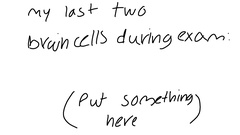 my last two
brain cells during exam:
(Put something
here)